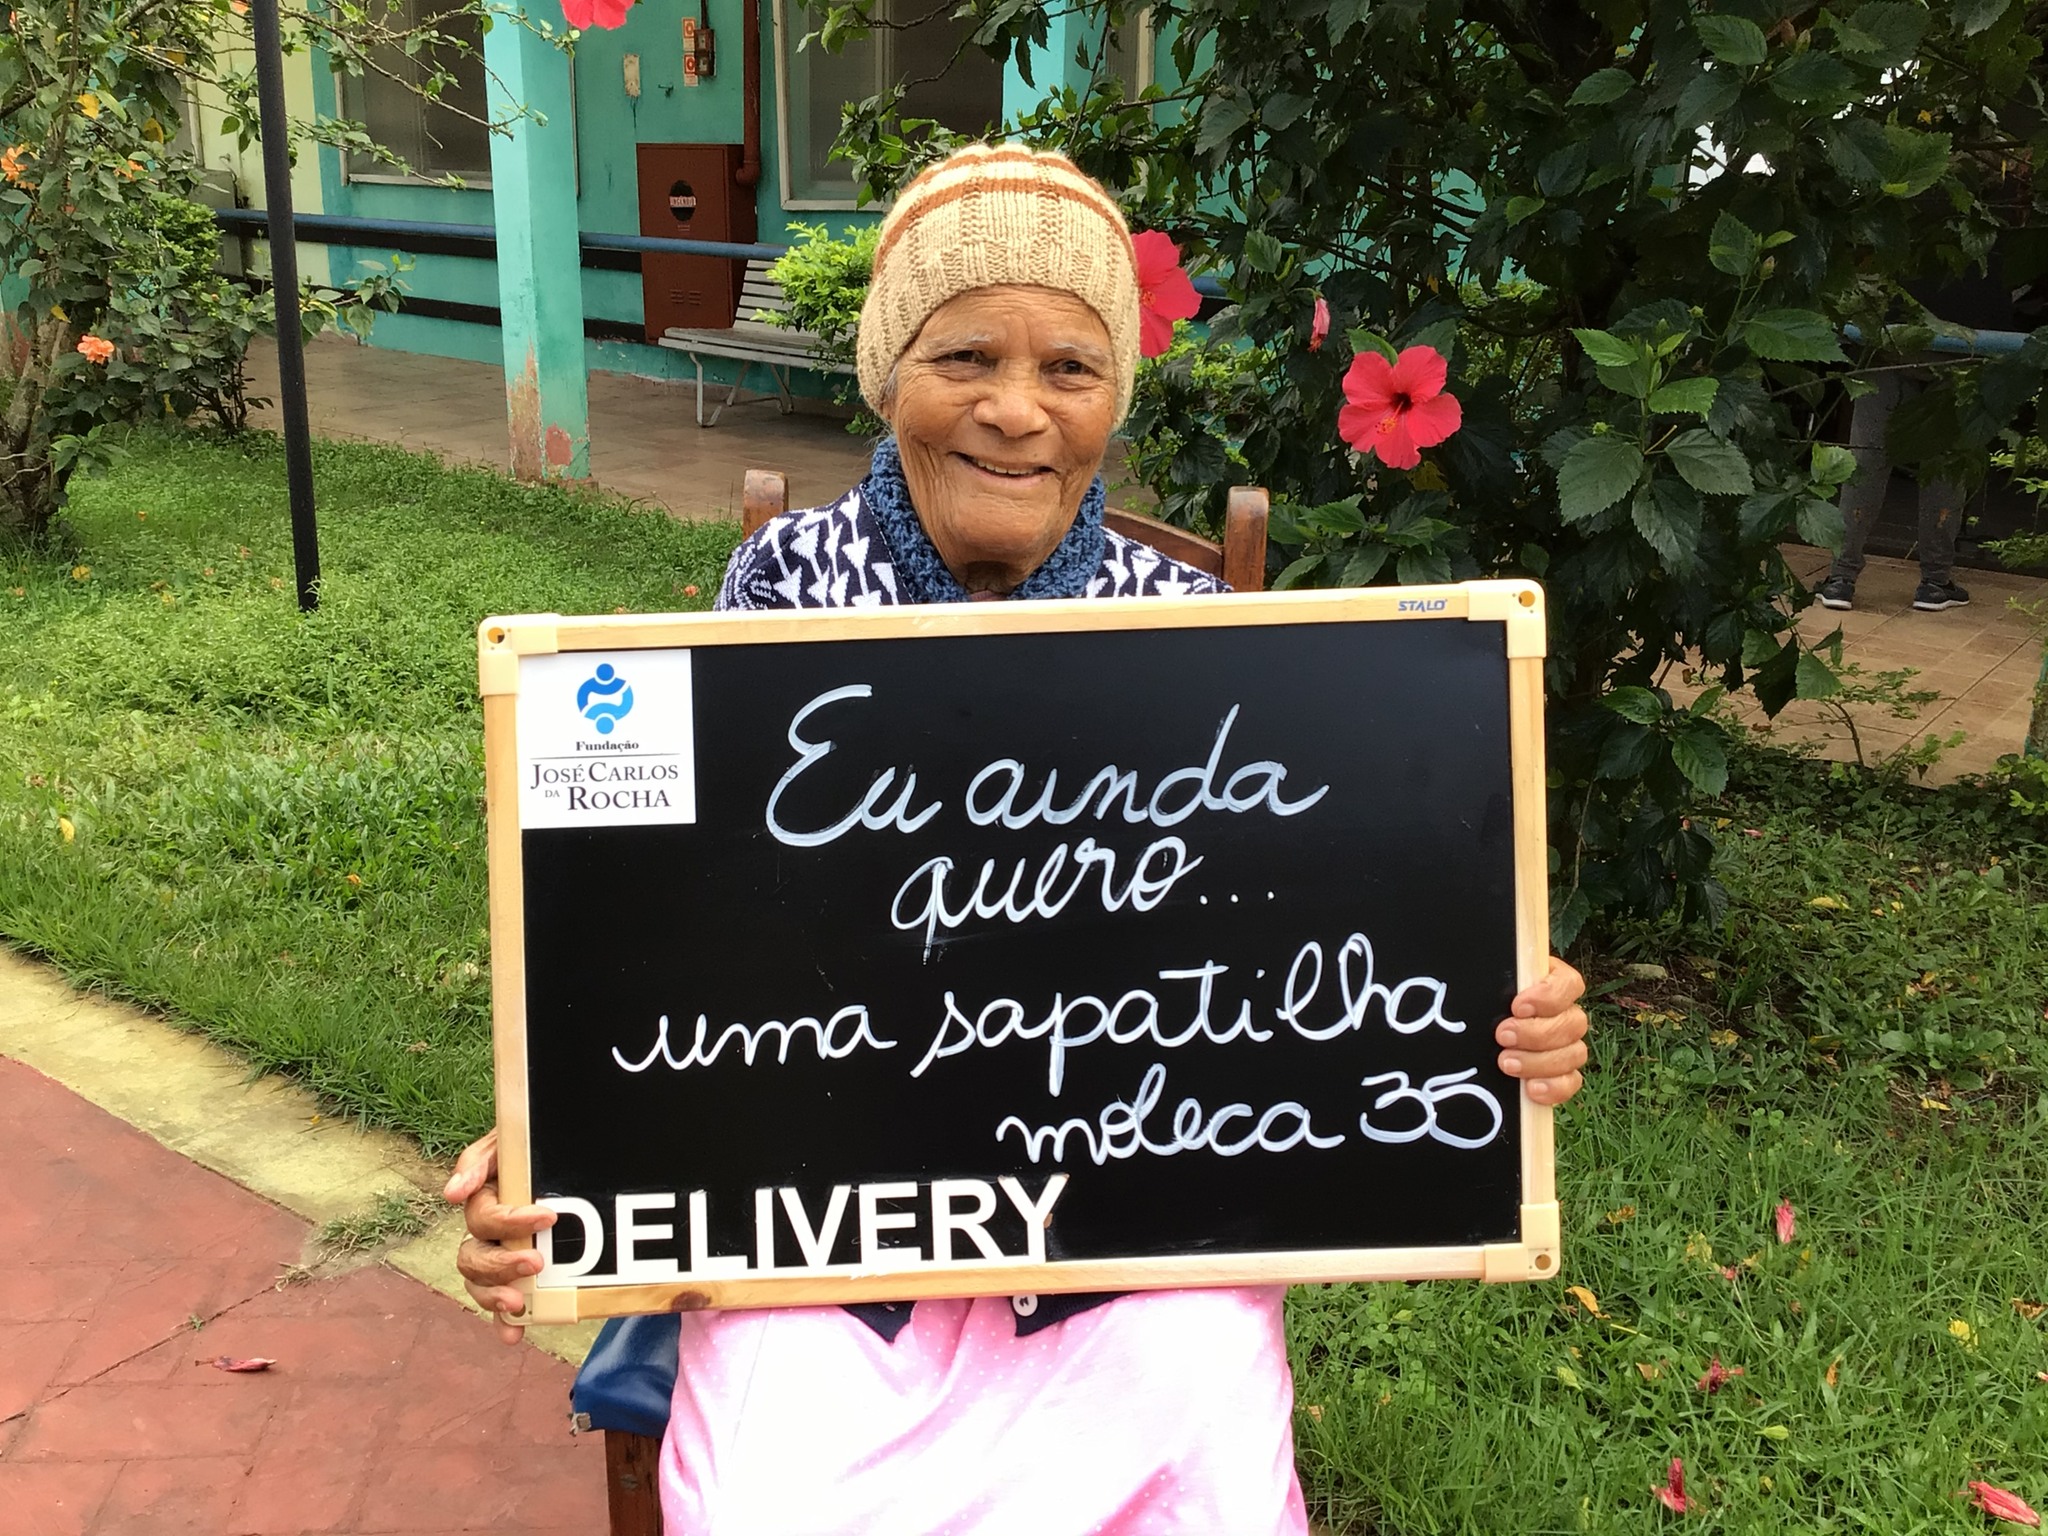 STALO
Fundação
JOSÉ CARLOS
DA ROCHA
Eu ainda
quero...
uma sapatilha
moleca 35
DELIVERY